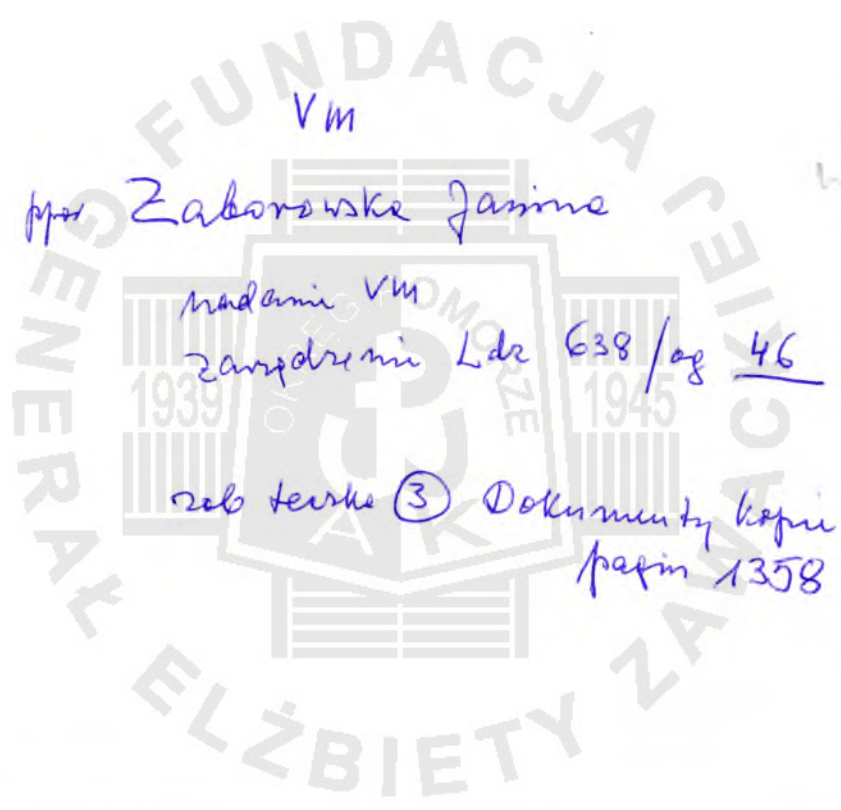 VM
ppor Zaborowska Janina
nadanie VM
zarządzenie Ldz 638/og 46
zob teczka 3 Dokumenty kopie
pagin 1358
FUNDACJA GENERAŁ ELŻBIETY ZAWACKIEJ
OKRĘG POMORZE
1939 1945
AK